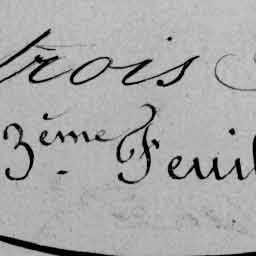 trois
3ème Feuil